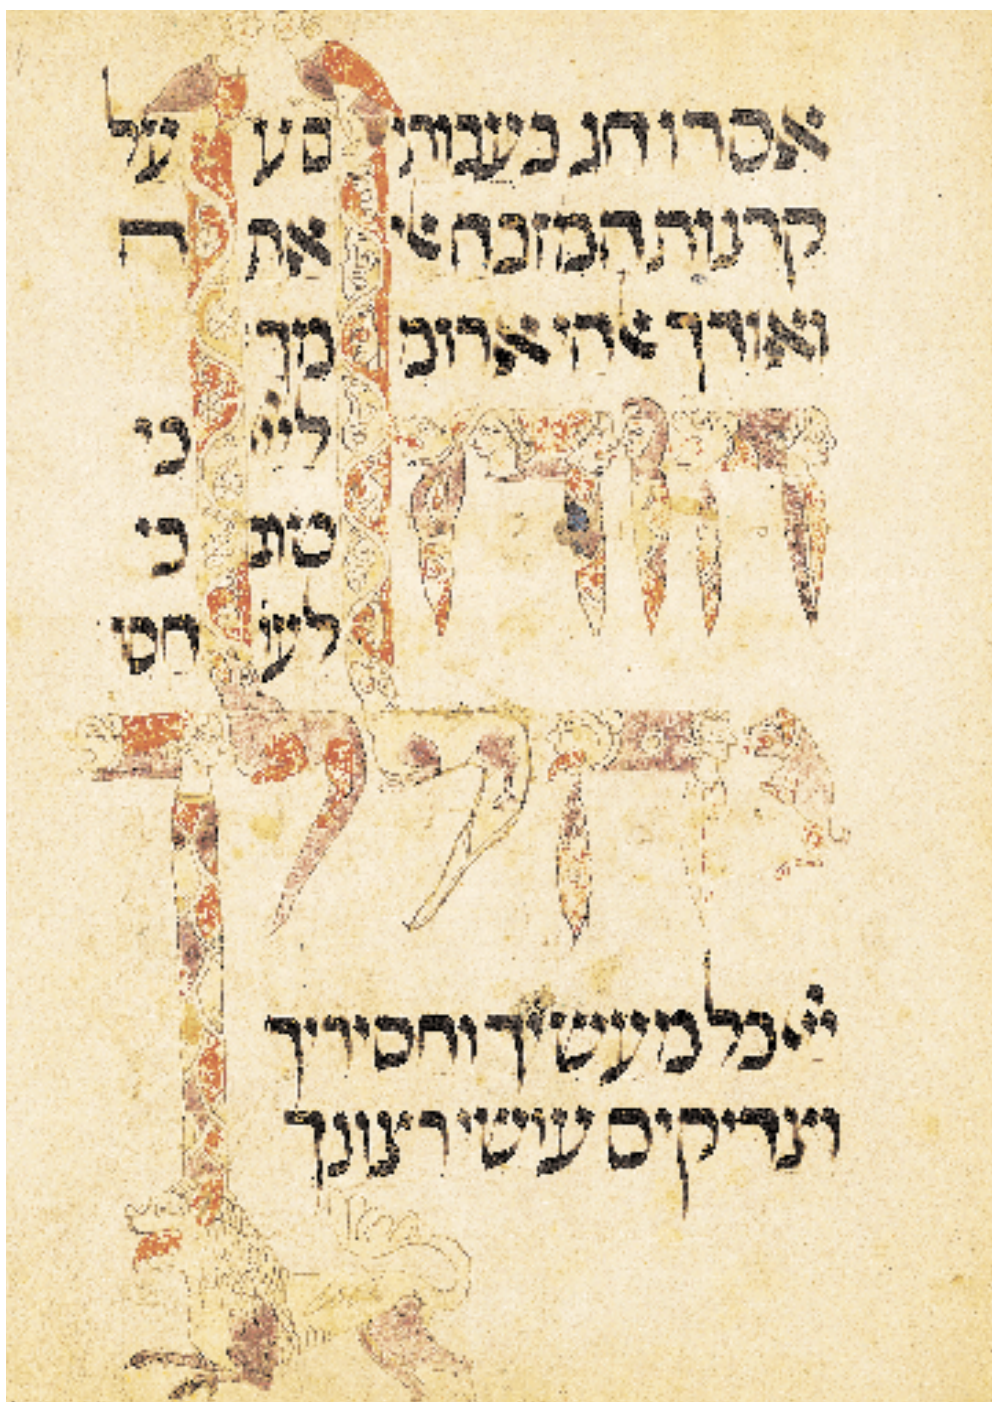 אסרו חג בעבותים ע על
קרנות המזבח אלי אתה
ואודך אלהי ארוממך
הודו
ליי כי
טוב כי
לעו חס
יהללוך
יי כל מעשיך וחסידיך
וצדיקים עושי רצונך